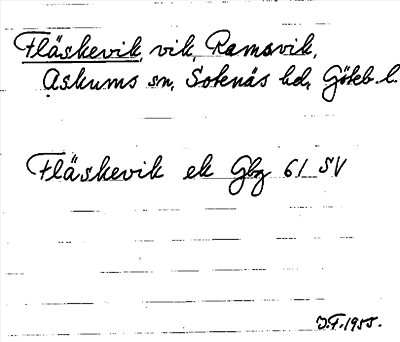 Fläskevik, vik, Ramsvik,
Askums sn, Sotenäs hd, Göteb. l.
Fläskevik ek Gbg 61 SV
J.F. 1955.